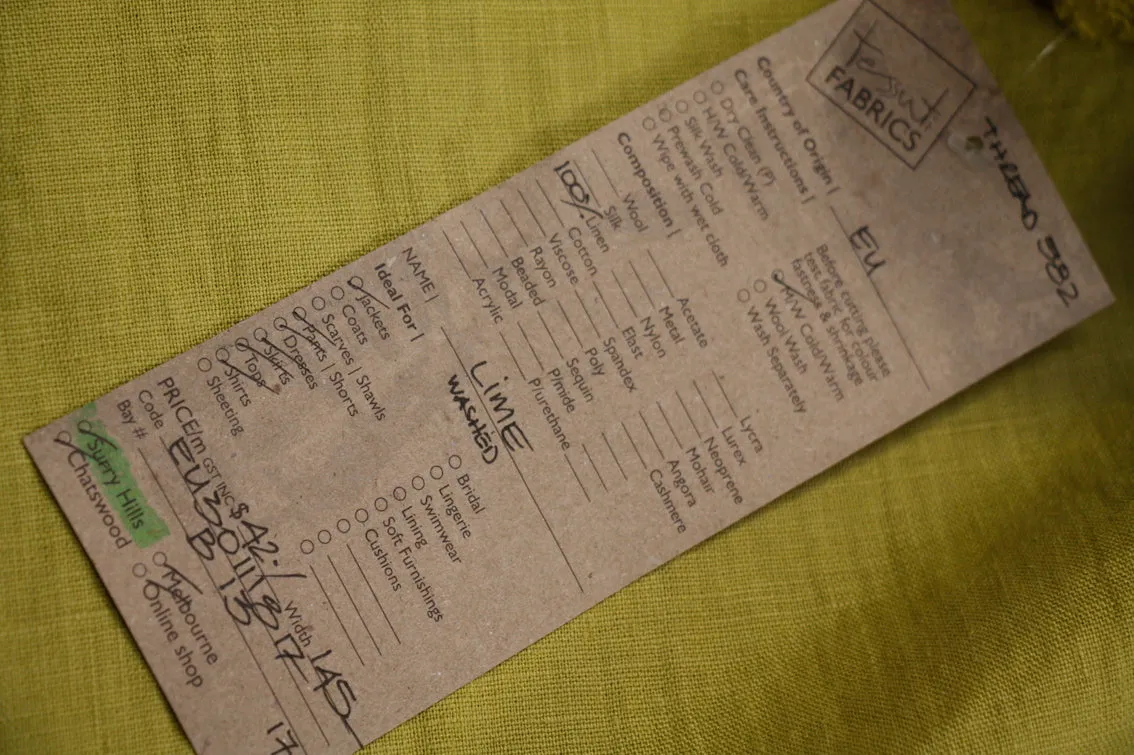 tessuti
FABRICS
THREAD 382
Country of Origin | EU
Care Instructions |
Dry Clean (P)
H/W Cold/Warm
Silk Wash
Prewash Cold
Wipe with wet cloth
Before cutting please
test fabric for colour
fastness & shrinkage
H/W Cold/Warm
Wool Wash
Wash Separately
Composition |
Wool
Silk
100% Linen
Cotton
Viscose
Rayon
Beaded
Modal
Acrylic
Acetate
Metal
Nylon
Elast
Spandex
Poly
Sequin
P/mide
P/urethane
Lycra
Lurex
Neoprene
Mohair
Angora
Cashmere
NAME | LIME
WASHED
Ideal For |
Jackets
Coats
Scarves | Shawls
Pants | Shorts
Dresses
Skirts
Tops
Shirts
Sheeting
Bridal
Lingerie
Swimwear
Lining
Soft Furnishings
Cushions
PRICE/m GST INC $42./ Width 145
Code EU3011817
Bay # B 13
Surry Hills
Chatswood
Melbourne
Online shop
17